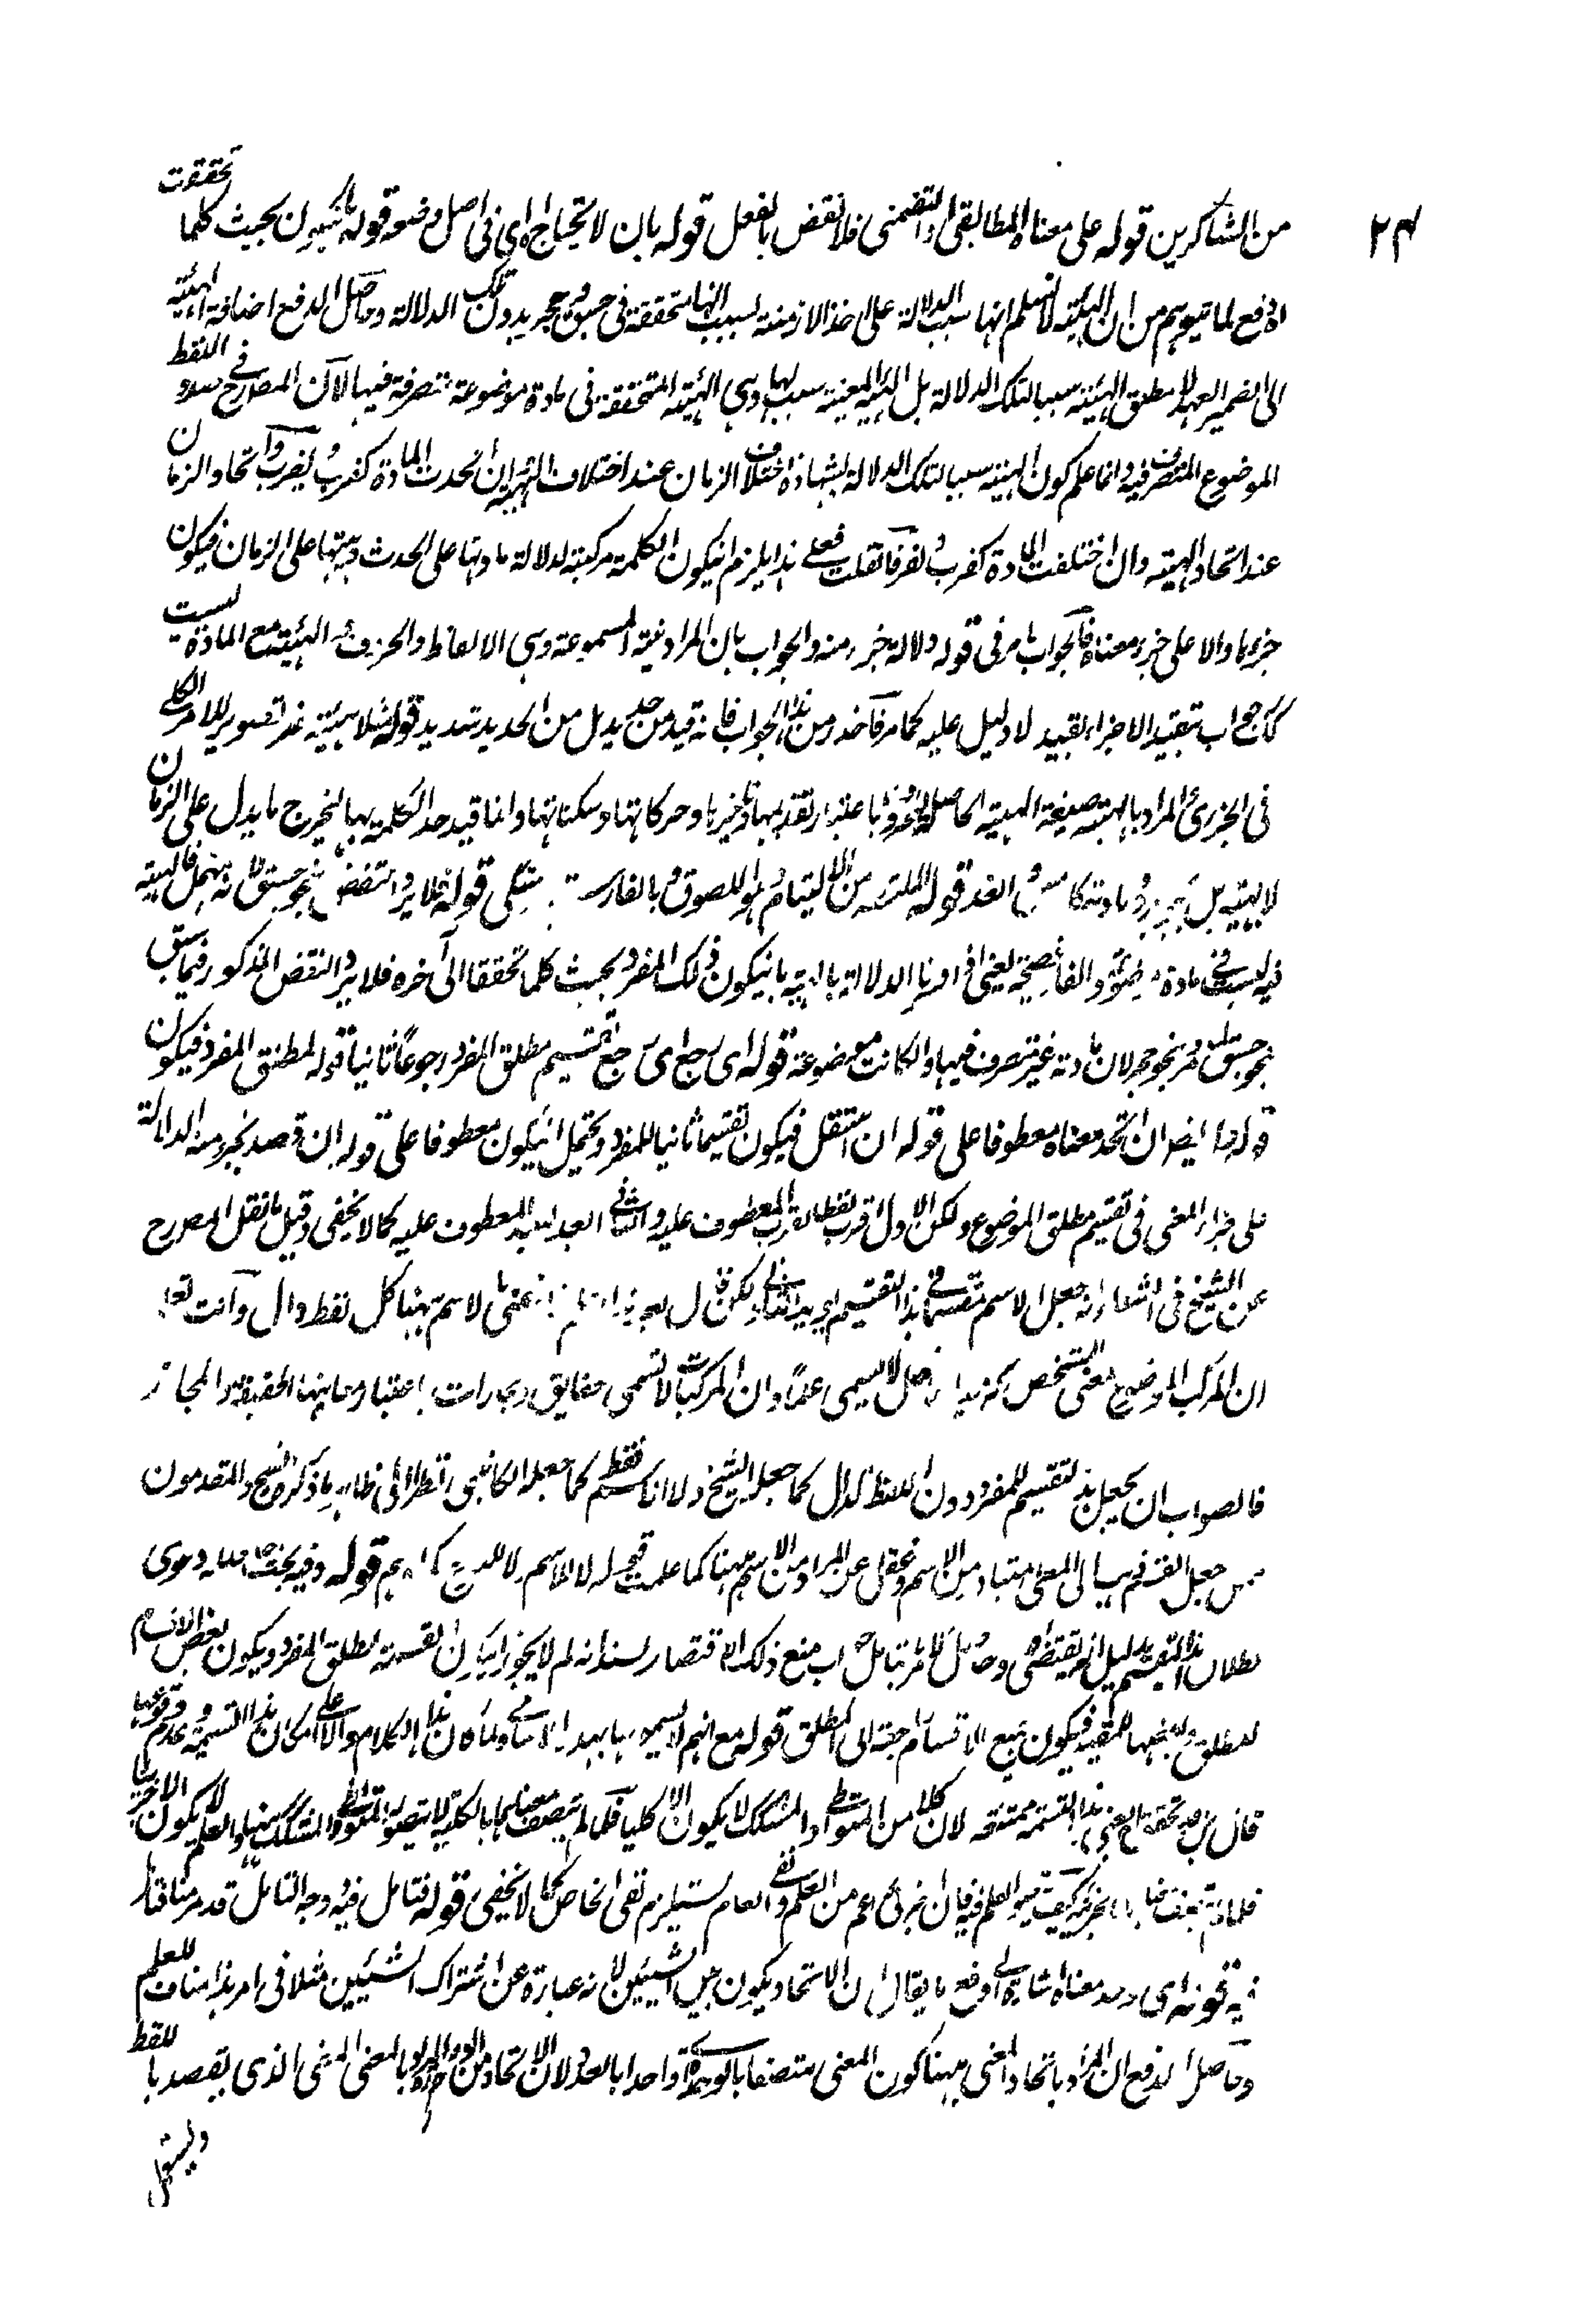 ٢٤
من الشاكرين قوله على معناه المطابقي او التضمني فلا نقض بالفعل قوله بان لا تحتاج اه اي في اصل وضعه قوله بان يكون بحيث كلما تحققت
اه دفع لما يتوهم من ان الهيئة لا نسلم انها سبب الدلالة على احد الازمنة لسبب انها متحققة في جسق وحجر بدون تلك الدلالة وحاصل الدفع اضافة الهيئة
الى الضمير العهد لا مطلق الهيئة سببا لتلك الدلالة بل الهيئة المعينة سبب لها وهي الهيئة المتحققة في مادة موضوعة متصرفة فيها الا ان المصرح في اللفظ
الموضوع المتصرف فيه وانما علم كون الهيئة سببا لتلك الدلالة بشهادة اختلاف الزمان عند اختلاف الهيئة وان اتحدت المادة كضرب ويضرب واتحاد الزمان
عند اتحاد الهيئة وان اختلفت المادة كضرب ونفر فان قلت فعلى هذا يلزم ان يكون الكلمة مركبة لدلالة مادتها على الحدث وهيئتها على الزمان فيكون
جزءها دالا على جزء معناه فالجواب مر في قوله دلالة جزء منه والجواب بان المراد منه المسموعة وهي الالفاظ والحروف والهيئة مع المادة ليست
كك جواب بتقييد الاجزاء بقيد لا دليل عليه كما مر فاخذ من هذا الجواب فانه قيد من حديد بل من الحديد شديد قوله مثلا هيئة نصر تصوير للامر الكلي
في الجزئي المراد بالهيئة صيغة الهيئة الحاصلة للحروف باعتبار تقديمها وتاخيرها وحركاتها وسكناتها وانما قيد حد الكلمة بها ليخرج ما يدل على الزمان
لا بهيئته بل بجوهره ومادته كامس والغد قوله الملتئمة من الالتيام وهو اللصوق وبالفارسية قوله فلا يرد النقض بنحو جسق لانه مهمل فالهيئة
فيه ليست في مادة موضوعة والفاء فصيحة يعني اذا اردنا الدلالة بالهيئة بان يكون ذلك المفرد بحيث كلما تحققت الى آخره فلا يرد النقض المذكور فيما سبق
بنحو جسق ونحو حجر لان مادته غير متصرف فيها وان كانت موضوعة قوله اي رجع اي رجع تقسيم مطلق المفرد رجوعا ثانيا قوله لمطلق المفرد فيكون
قوله وايضا ان اتحد معناه معطوفا على قوله ان استقل فيكون تقسيما ثانيا للمفرد ويحتمل ان يكون معطوفا على قوله ان قصد بجزء منه الدلالة
على جزء المعنى في تقسيم مطلق الموضوع ولكن الاول اقرب لفظا لقرب المعطوف عليه والثاني ابعد لبعد المعطوف عليه كما لا يخفى وقيل ما نقل المصرح
عن الشيخ في اشعار انه جعل الاسم مقسما في هذا التقسيم
ان المركب الموضوع بمعنى المشخص لا يسمى علما وان المركبات لا تسمى حقايق ومجازات باعتبار معانيها الحقيقة والمجاز
فالصواب ان يجعل هذا التقسيم للمفرد دون اللفظ الدال كما جعله الشيخ ولا الاسم فقط كما جعله الكاتبي نظرا الى ظاهر ما ذكره الشيخ والمتقدمون
من جعل القسم ذهب الى المعنى المتبادر من الاسم وغفل عن المراد من الاسم ههنا كما علمت قوله لا للاسم قوله وفيه بحث دعوى
بطلان هذا التقسيم بدليل وحاصل الجواب منع ذلك الاقتصار لسند انه لم لا يجوز ان يكون القسمة لمطلق المفرد ويكون بعض الاقسام
للمطلق وبعضها للمقيد فيكون جميع الاقسام راجعة الى المطلق قوله مع انهم لا يسمونها بهذه الاسامي ولما كان هذا الكلام دالا على امكان هذا القسمة وعدم وقوعها
هذا القسمة ممتنعة لان كلا من المتواطي والمشكك لا يكون الا كليا فما لم يتصف معناهما بالكلية لا يتصور المتواطي والمشكك فيهما والعلم لا يكون الا جزئيا
فلما لم يتصف بالجزئية كيف يتصور العلم فيه فان الجزئي اعم من العلم ونفي العام يستلزم نفي الخاص كما لا يخفى قوله فتامل فيه وجه التامل قد مر منا فتامل
فيه قوله اي وحد معناه اشارة الى دفع ما يقال ان الاتحاد يكون بين الشيئين لانه عبارة عن اشتراك الشيئين مثلا في امر هذا مناف للعلم
وحاصل الدفع ان المراد باتحاد المعنى ههنا كون المعنى متصفا بالوحدة واحدا بالعدد لان الاتحاد من الوحدة والمراد بالمعنى المعنى الذي يقصد باللفظ
ويستعمل